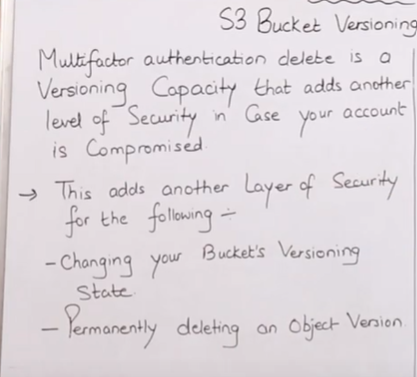 S3 Bucket Versioning
Multifactor authentication delete is a
Versioning Capacity that adds another
level of Security in Case your account
is Compromised.
→ This adds another Layer of Security
for the following ÷
- Changing your Bucket's Versioning
State.
- Permanently deleting an Object Version.